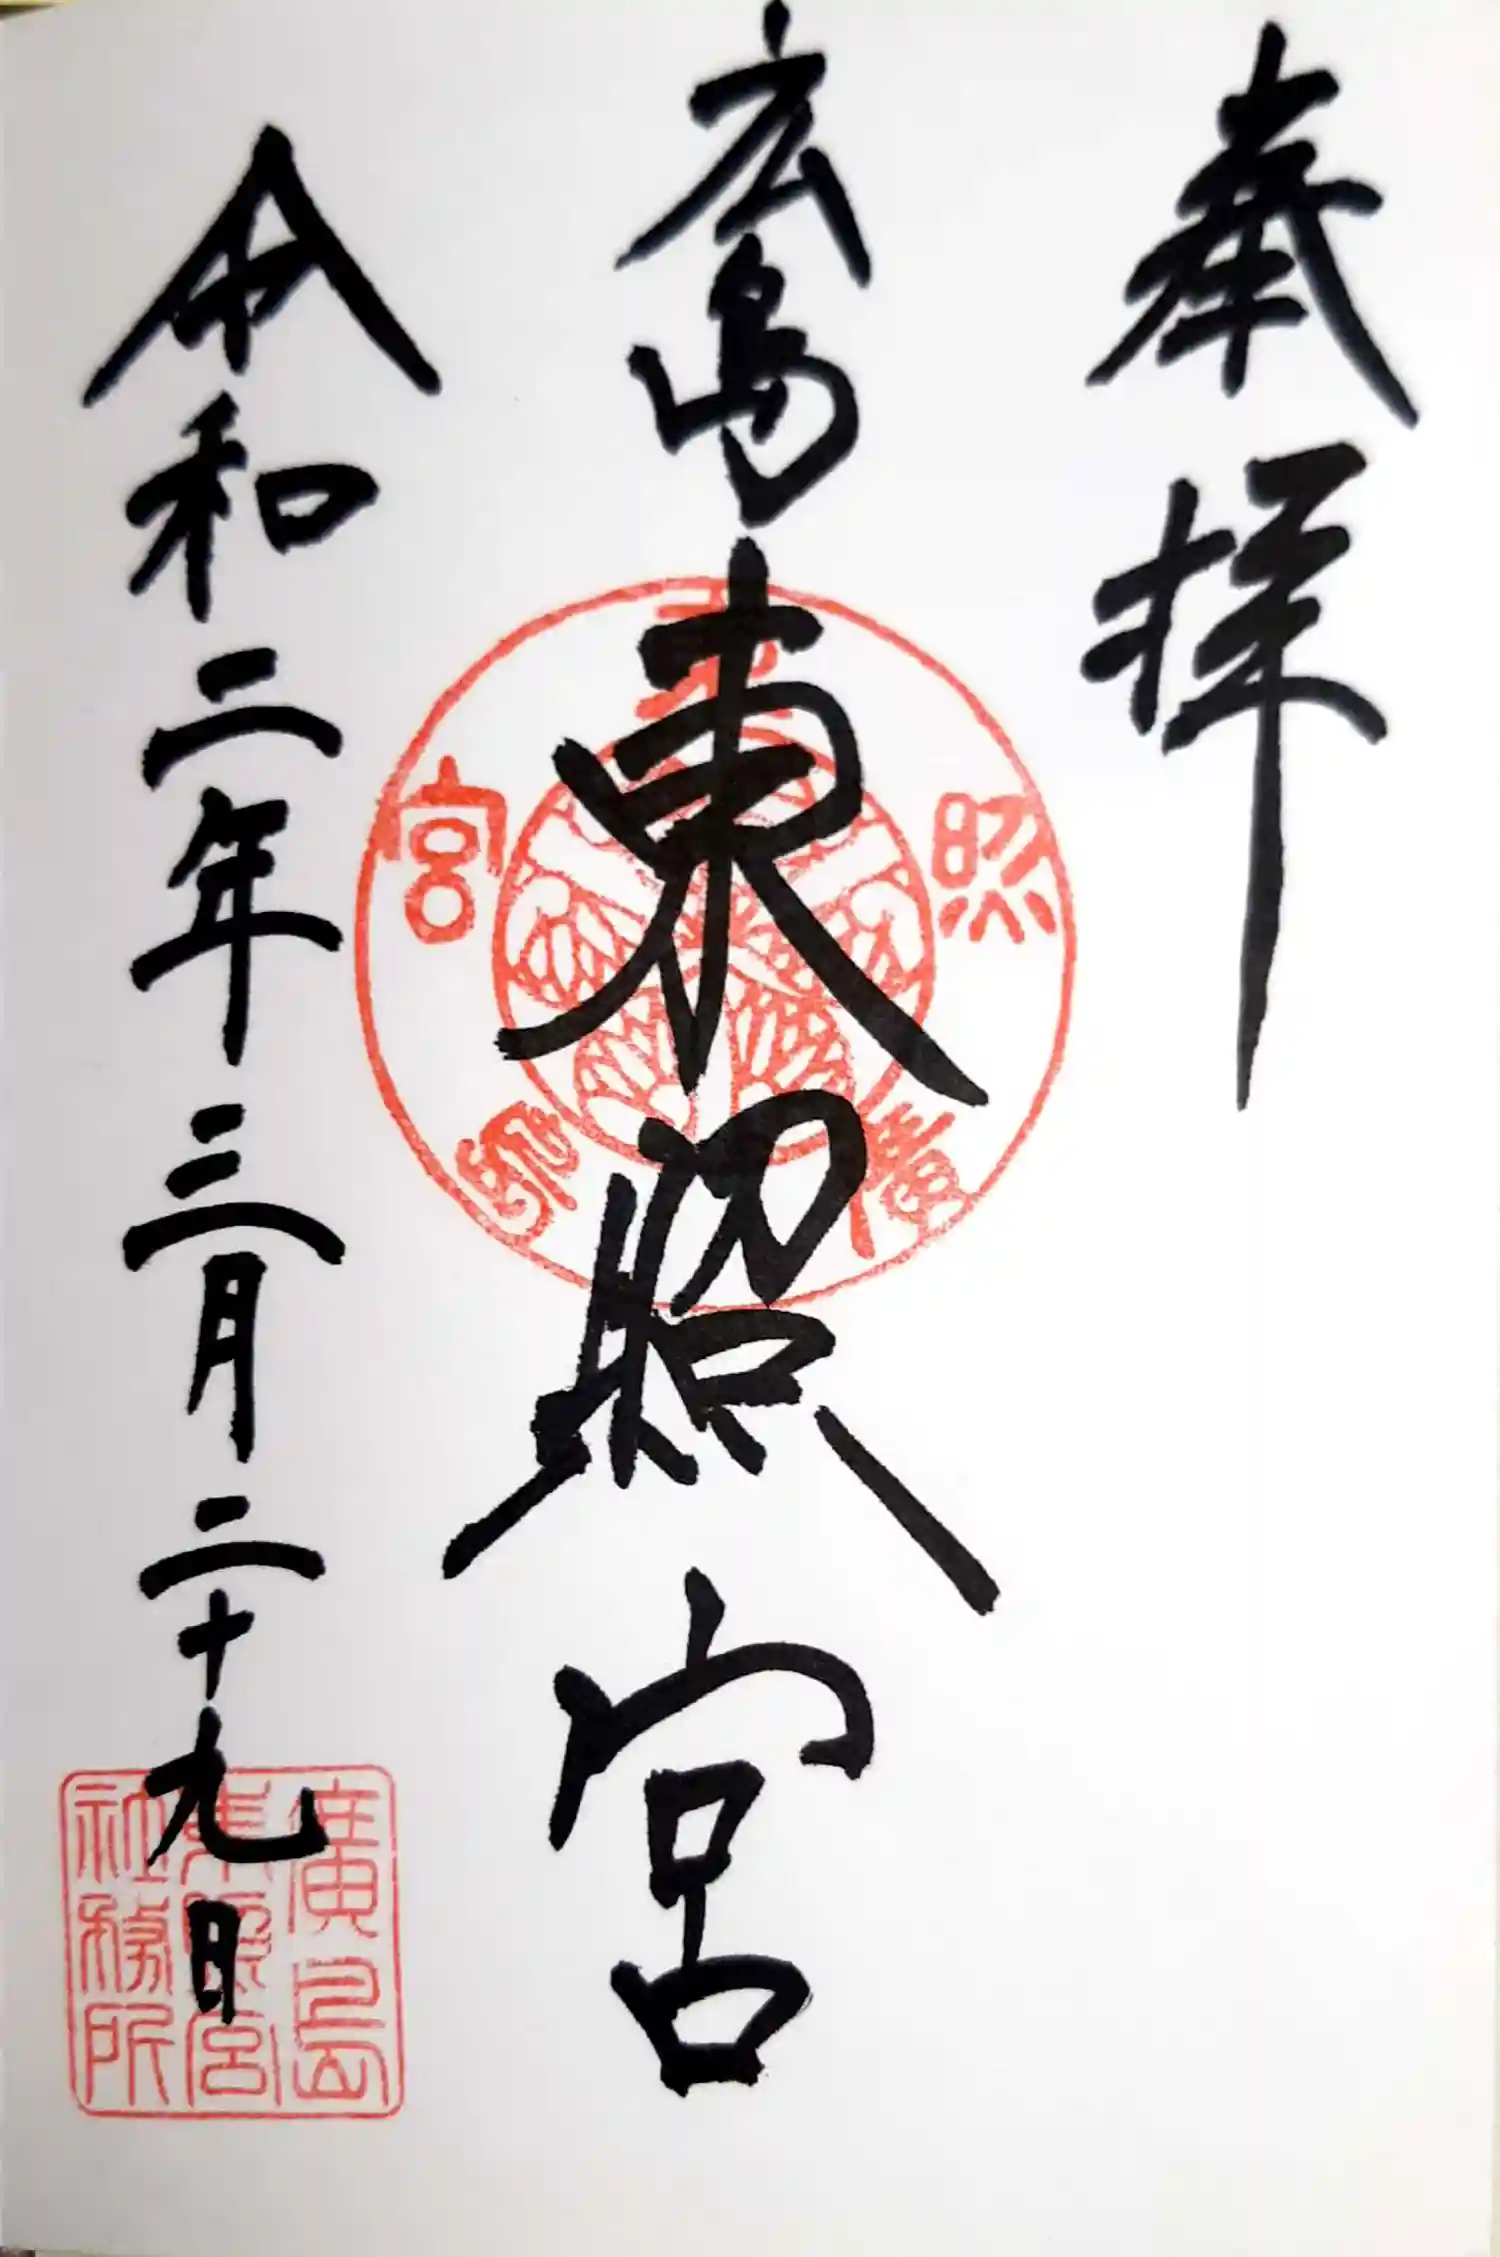 奉拝
広島東照宮
令和二年三月二十九日
東照宮廣島
廣島東照宮社務所